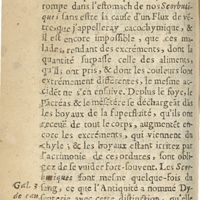 rompe dans l'estomach de nos Scorbuti-
ques sans estre la cause d'un Flux de vẽ-
tre, que j'appelleray cacochymique, &
il est encore impossible, que ces ma-
lades, rendant des excréments, dont la
quantité surpasse celle des aliments,
qu'ils, ont pris, & dont les couleurs sont
extremement differentes, le mesme ac-
cident ne s'en ensuive. Deplus le foye, le
Pacréas & le mésétère se déchargeãt dãs
les boyaux de la superfluité, qu'ils ont
receu de tout le corps, augmentẽt en-
core les excréments, qui viennent du
chyle; & les boyaux estant irritez par
l'acrimonie de ces ordures, sont obli-
gez de se vuider fort-souvent. Les Scor-
butiques sont mesme quelque-fois du
Gal. 3. sang, ce que l'Antiquité a nommé Dy-
de cau. senterie avec cette distinction, qu'elle